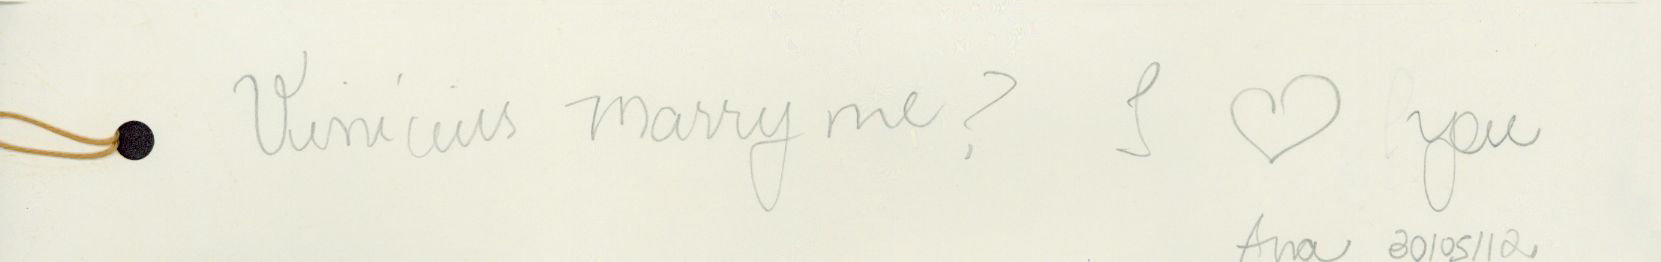 Vinícius marry me? I ♡ you
Ana 30/05/12